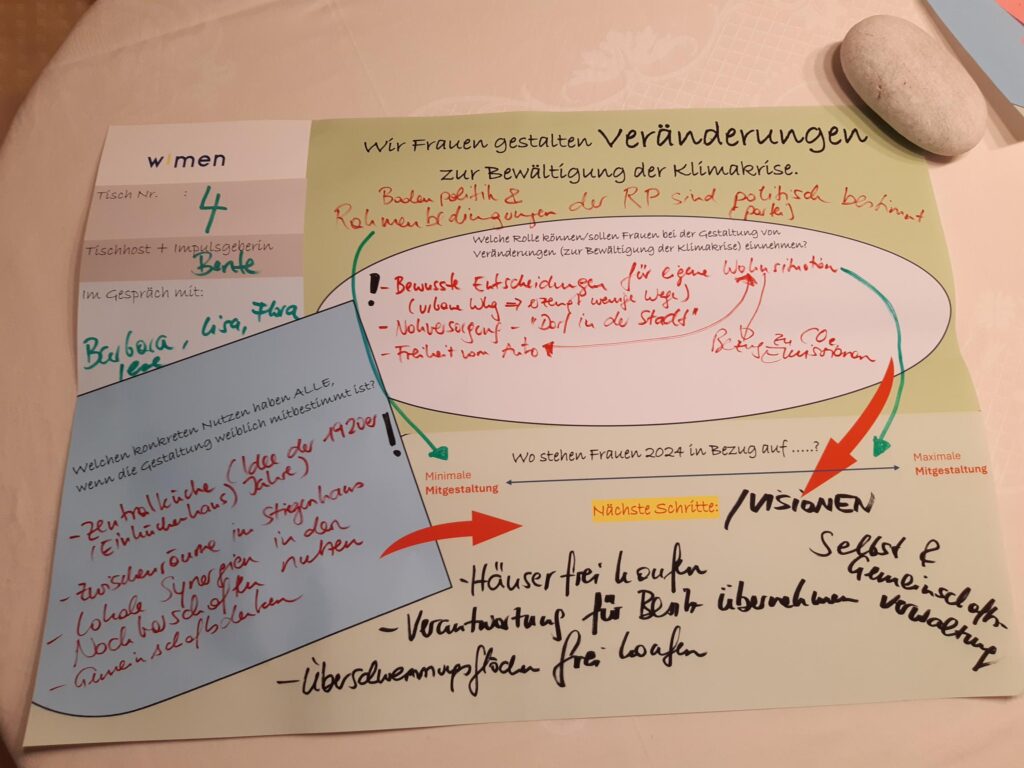 w/men
Tisch Nr. :
4
Tischhost + Impulsgeberin
Bente
Im Gespräch mit:
Barbara, Lisa, Flora
Wir Frauen gestalten Veränderungen
zur Bewältigung der Klimakrise.
Bodenpolitik &
Rahmenbedingungen der RP sind politisch bestimmt
Welche Rolle können/sollen Frauen bei der Gestaltung von
Veränderungen (zur Bewältigung der Klimakrise) einnehmen?
! - Bewusste Entscheidungen für eigene Wohnsituation
(urbane Whg => erzeugt wenige Wege)
- Nahversorgung - "Dorf in der Stadt"
- Freiheit vom Auto
Bezug zu CO2
Emissionen
Welchen konkreten Nutzen haben ALLE,
wenn die Gestaltung weiblich mitbestimmt ist?
- Zentralküche (Idee der 1920er !
(Einküchenhaus) Jahre)
- Zwischenräume im Stiegenhaus
- Lokale Synergien in den
Nachbarschaften nutzen
- Gemeinschaftsdenken
Wo stehen Frauen 2024 in Bezug auf .....?
Minimale
Mitgestaltung
Maximale
Mitgestaltung
Nächste Schritte: /VISIONEN
- Häuser frei kaufen
- Verantwortung für Besitz übernehmen
- Überschwemmungsflächen frei kaufen
Selbst &
Gemeinschafts-
verwaltung